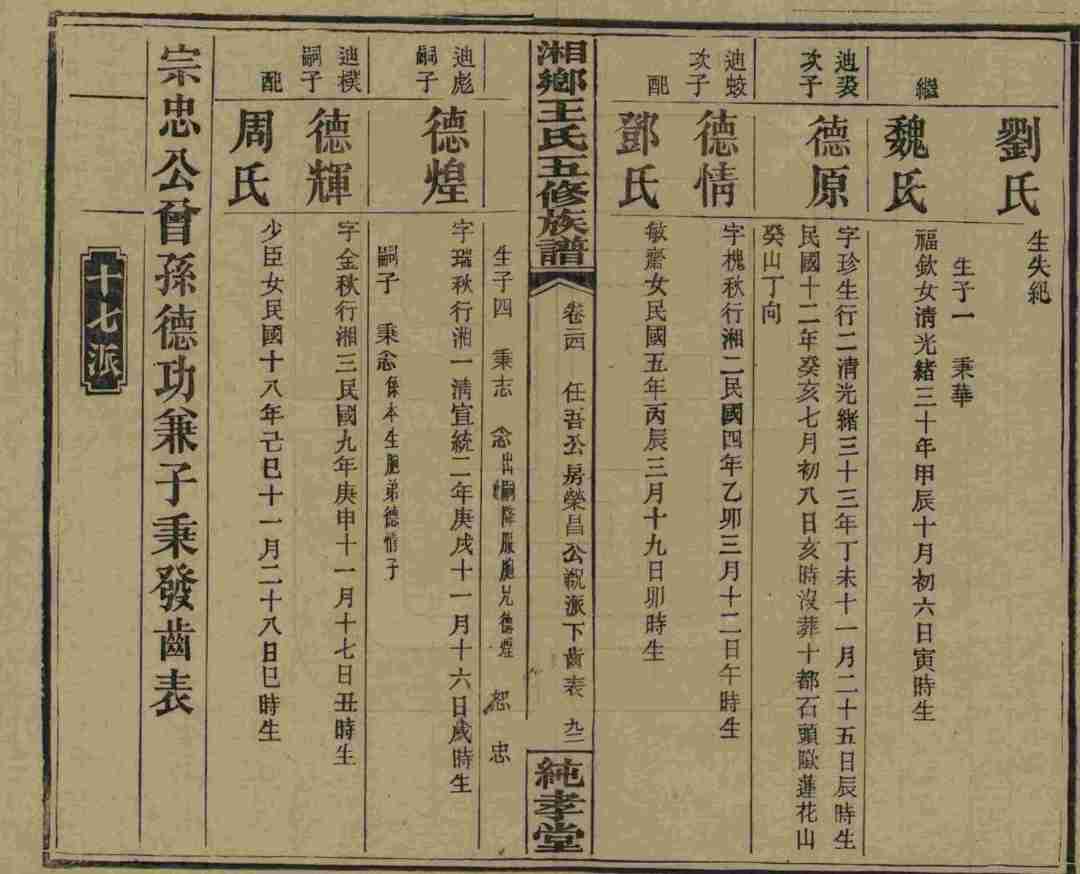 劉氏
生失紀
生子一 秉華
繼
魏氏
福欽女清光緒三十年甲辰十月初六日寅時生
迪裘
次子
德原
字珍生行二清光緒三十三年丁未十一月二十五日辰時生
民國十二年癸亥七月初八日亥時沒葬十都石頭歐蓮花山
癸山丁向
迪蛟
次子
德情
字槐秋行湘二民國四年乙卯三月十二日午時生
配
鄧氏
敏磨女民國五年丙辰三月十九日卯時生
湘鄉王氏五修族譜
卷三四 任吾公房榮昌公祝派下齒表 九二
純孝堂
生子四 秉志 念出嗣降服胞兄德煌 恕 忠
迪彪
嗣子
德煌
字瑞秋行湘一清宣統二年庚戌十一月十六日歲時生
嗣子 秉念係本生胞弟德情子
迪樸
嗣子
德輝
字金秋行湘三民國九年庚申十一月十七日丑時生
配
周氏
少臣女民國十八年己巳十一月二十八日巳時生
宗忠公曾孫德功兼子秉發齒表
十七派